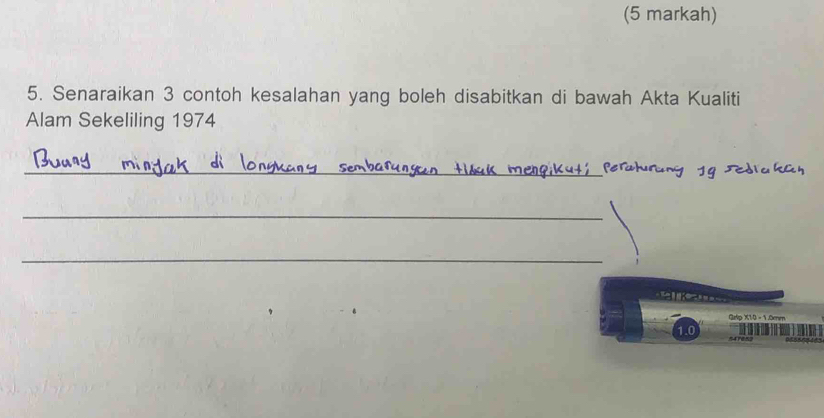 (5 markah)
5. Senaraikan 3 contoh kesalahan yang boleh disabitkan di bawah Akta Kualiti
Alam Sekeliling 1974
Buang minyak di longkang sembarangan tidak mengikuti peraturang yg sediakan
Grip X10 - 1.0mm
1.0